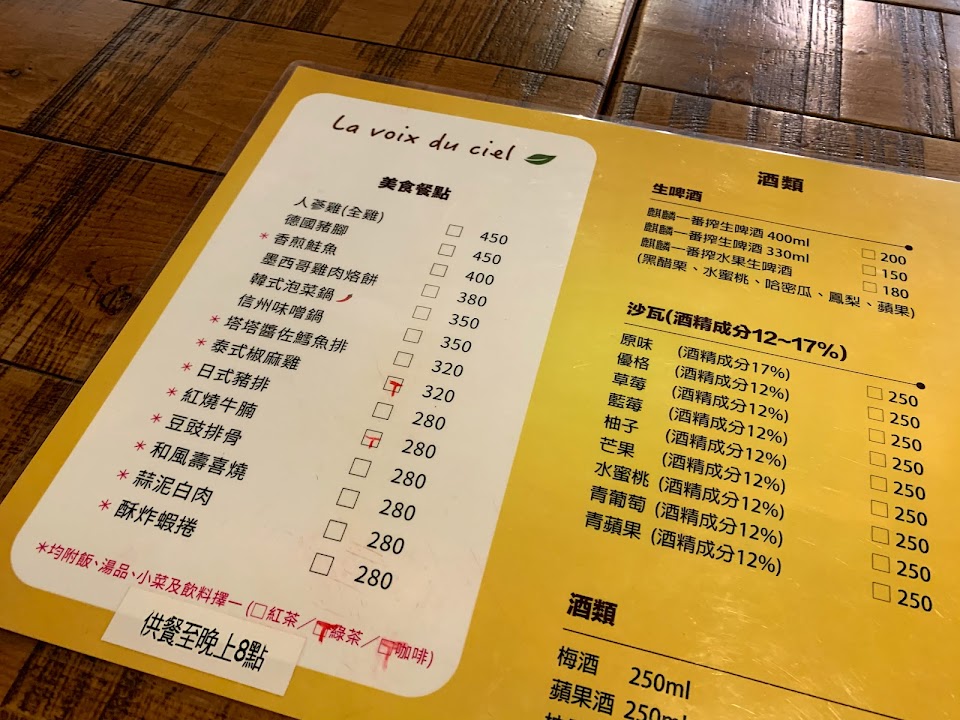 La voix du ciel
美食餐點
人蔘雞(全雞) □ 450
德國豬腳 □ 450
*香煎鮭魚 □ 400
墨西哥雞肉烙餅 □ 380
韓式泡菜鍋 □ 350
信州味噌鍋 □ 350
*塔塔醬佐鱈魚排 □ 320
*泰式椒麻雞 □ 320
*日式豬排 □ 280
*紅燒牛腩 □ 280
*豆豉排骨 □ 280
*和風壽喜燒 □ 280
*蒜泥白肉 □ 280
*酥炸蝦捲 □ 280
*均附飯、湯品、小菜及飲料擇一 (□紅茶／□綠茶／□咖啡)
供餐至晚上8點
酒類
生啤酒
麒麟一番搾生啤酒 400ml □ 200
麒麟一番搾生啤酒 330ml □ 150
麒麟一番搾水果生啤酒 □ 180
(黑醋栗、水蜜桃、哈密瓜、鳳梨、蘋果)
沙瓦(酒精成分12~17%)
原味 (酒精成分17%) □ 250
優格 (酒精成分12%) □ 250
草莓 (酒精成分12%) □ 250
藍莓 (酒精成分12%) □ 250
柚子 (酒精成分12%) □ 250
芒果 (酒精成分12%) □ 250
水蜜桃 (酒精成分12%) □ 250
青葡萄 (酒精成分12%) □ 250
青蘋果 (酒精成分12%) □ 250
酒類
梅酒 250ml
蘋果酒 250ml